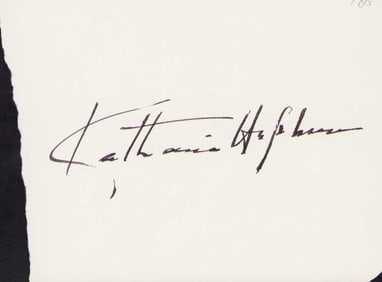 Katharine Hepburn